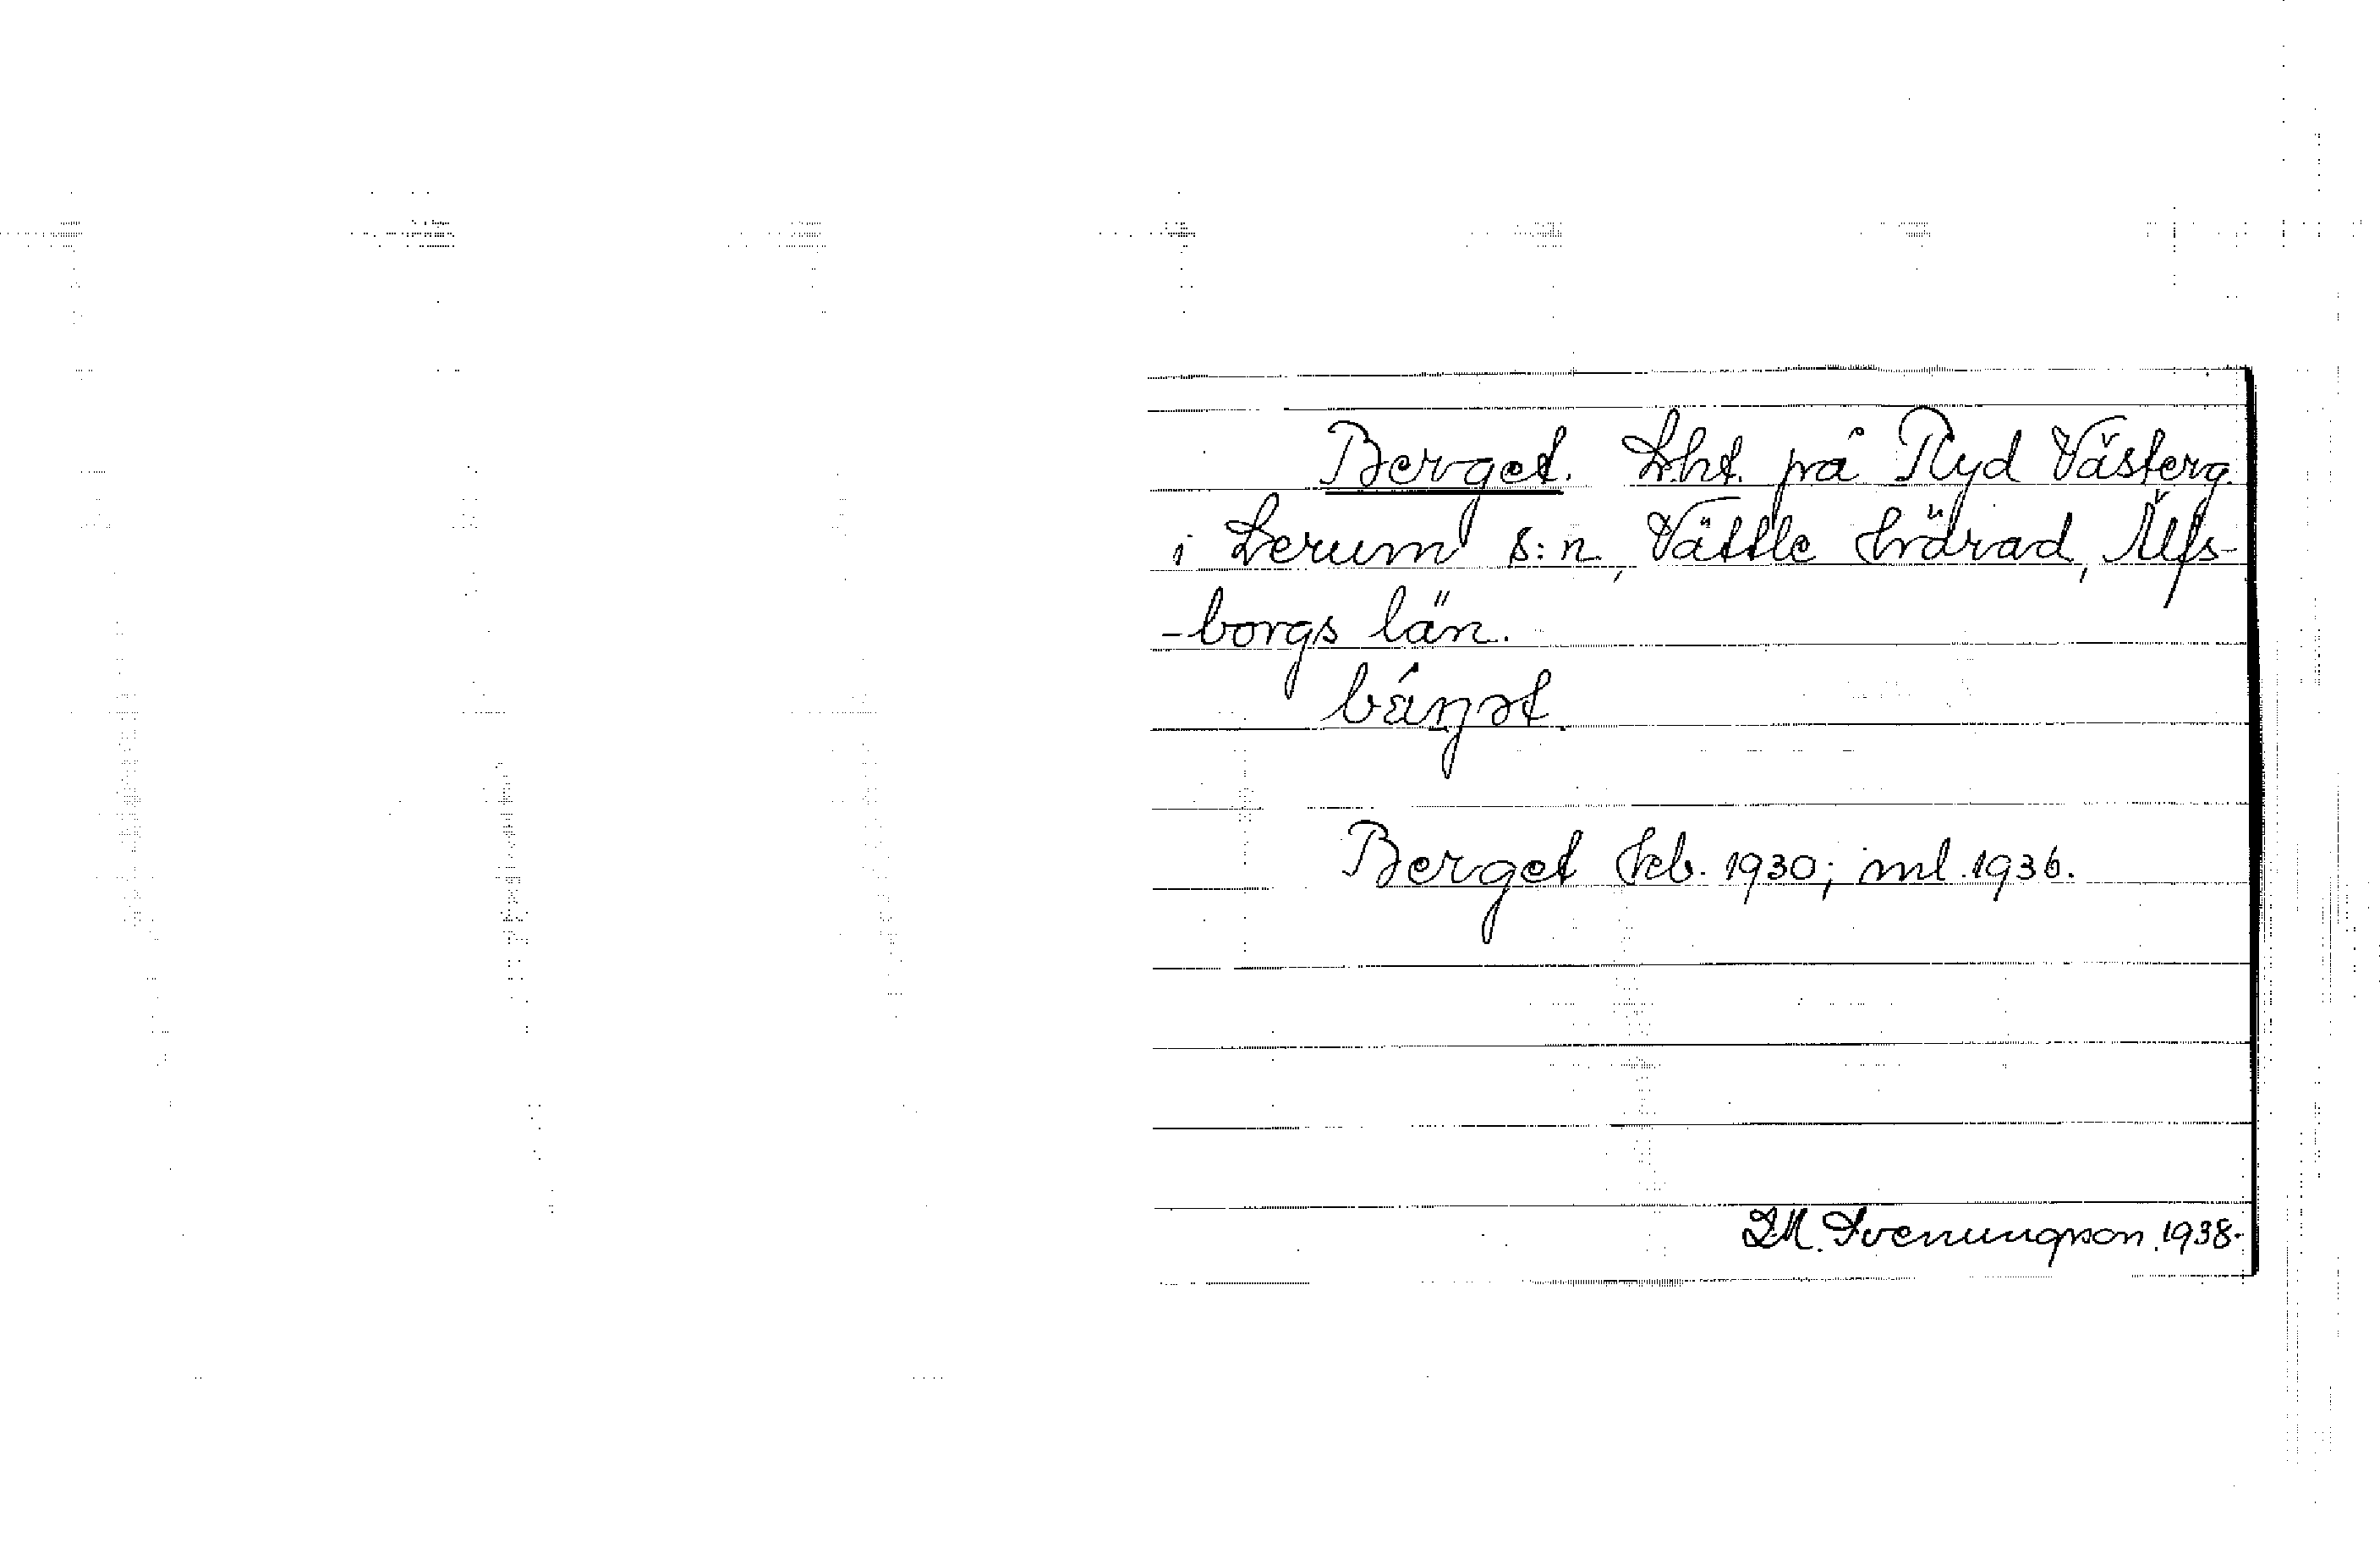 Berget. Lht. på Ryd Västerg.
i Lerum s:n, Vättle härad, Älfs-
-borgs län.
Berget Hcb. 1930; ml. 1936.
D.M. Svenungsson. 1938.